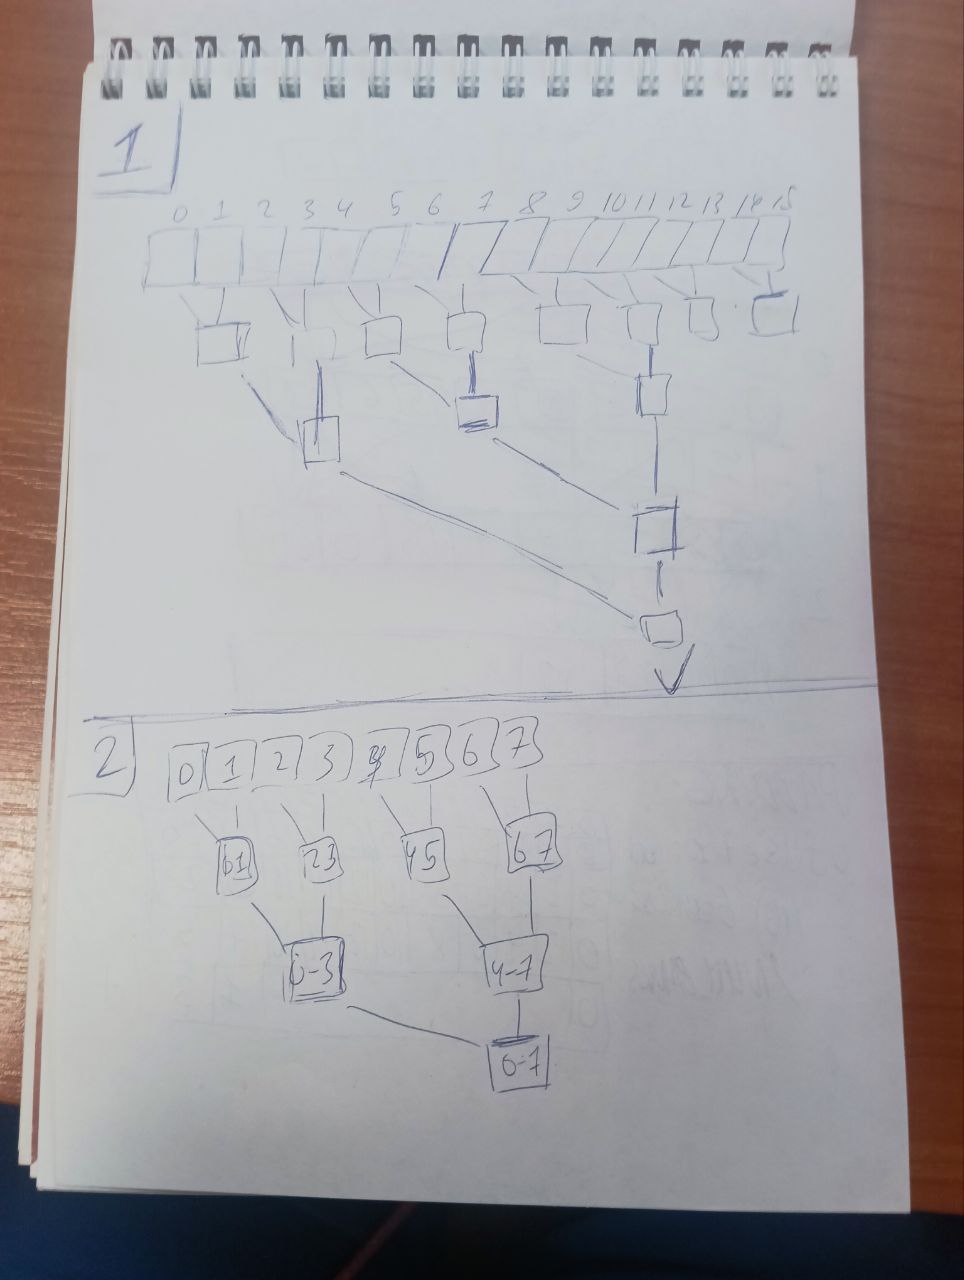 1
0 1 2 3 4 5 6 7 8 9 10 11 12 13 14 15
2
0 1 2 3 4 5 6 7
01 23 45 67
0-3 4-7
0-7